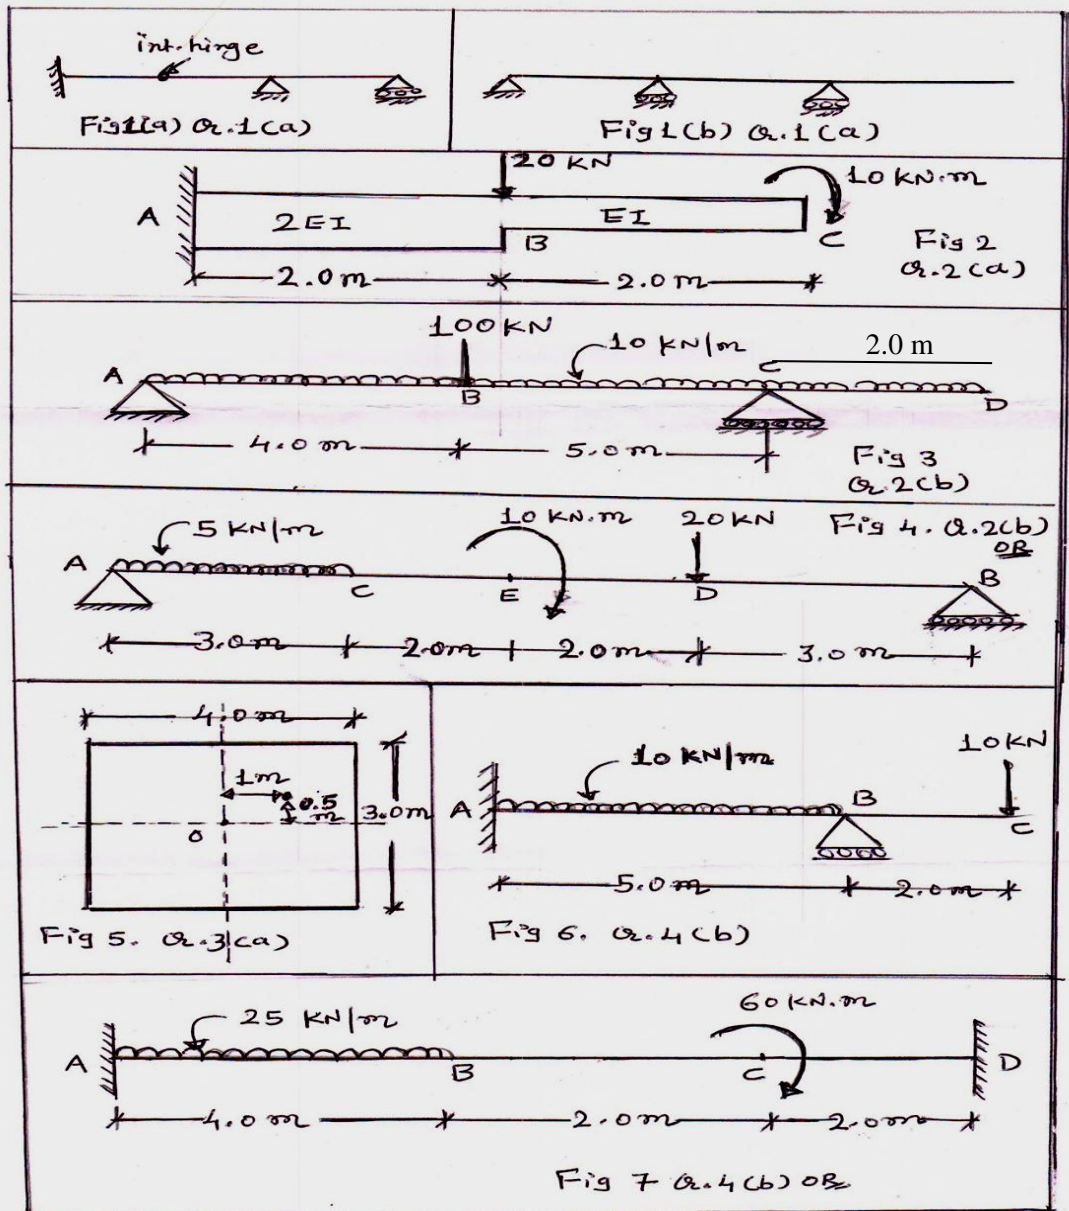 int. hinge
Fig1(a) Q.1(a)
Fig1(b) Q.1(a)
20 KN
10 KN.m
A
2EI
EI
B
C
Fig 2
Q.2(a)
2.0 m
2.0 m
100 KN
10 KN/m
C
2.0 m
A
B
D
4.0 m
5.0 m
Fig 3
Q.2(b)
5 KN/m
10 KN.m
20 KN
Fig 4. Q.2(b)
OR
A
C
E
D
B
3.0m
2.0m
2.0m
3.0 m
4.0 m
1m
0.5
m
3.0m
O
Fig 5. Q.3(a)
10 KN/m
10 KN
A
B
C
5.0m
2.0m
Fig 6. Q.4(b)
25 KN/m
60 KN.m
A
B
C
D
4.0 m
2.0m
2.0m
Fig 7 Q.4(b) OR